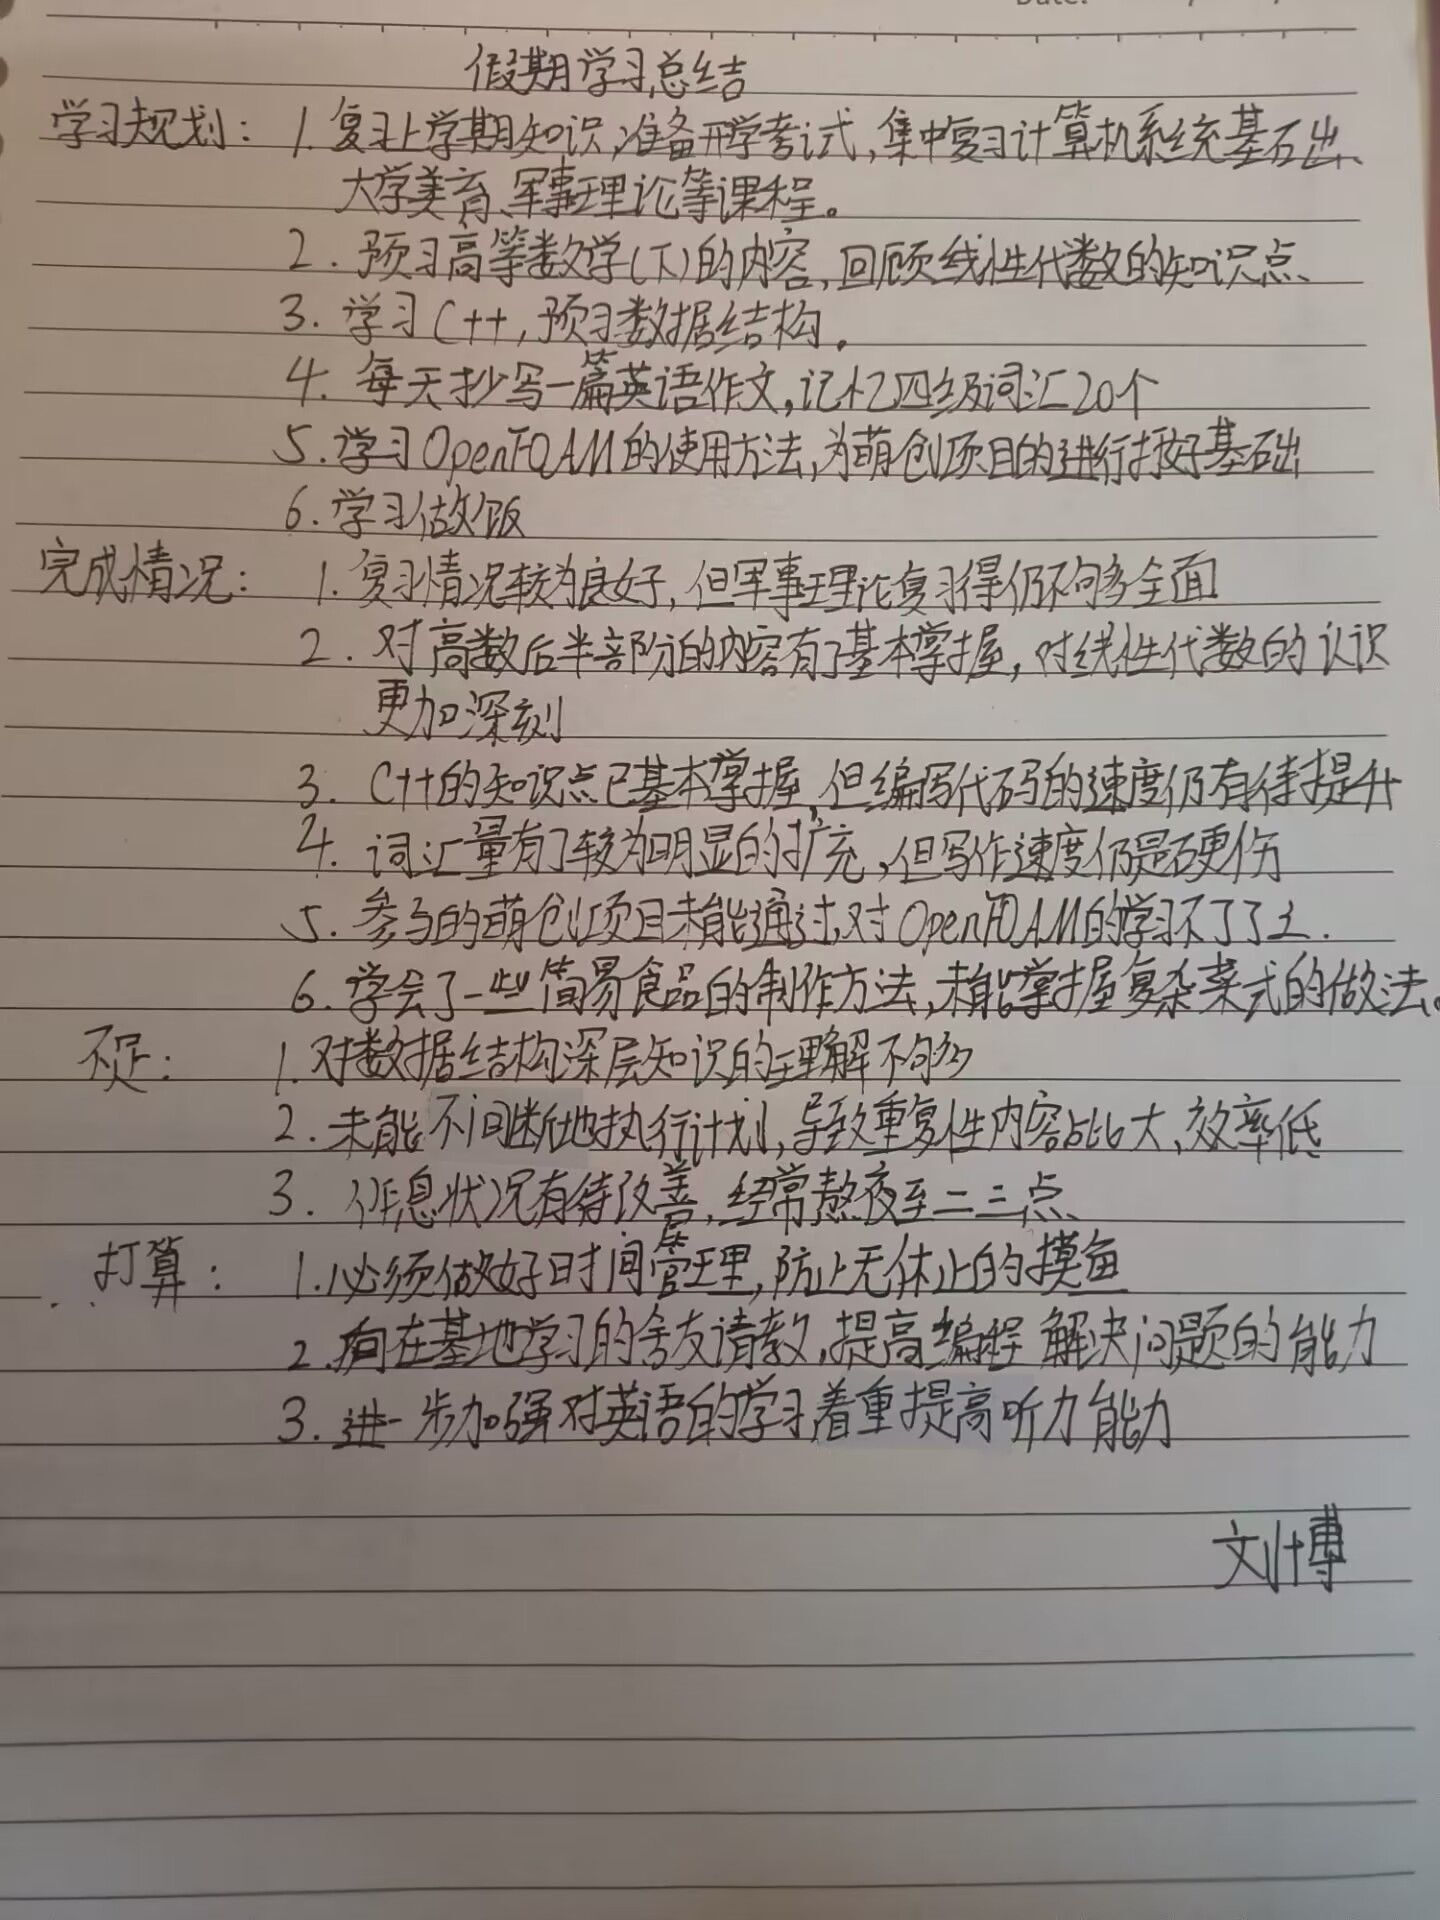 假期学习总结
学习规划：1.复习上学期知识,准备开学考试,集中复习计算机系统基础、
大学美育、军事理论等课程。
2.预习高等数学(下)的内容,回顾线性代数的知识点、
3.学习C++,预习数据结构。
4.每天抄写一篇英语作文,记忆四级词汇20个
5.学习OpenFOAM的使用方法,为萌创项目的进行打好基础
6.学习做饭
完成情况：1.复习情况较为良好,但军事理论复习得仍不够全面
2.对高数后半部分的内容有了基本掌握,对线性代数的认识
更加深刻
3.C++的知识点已基本掌握,但编写代码的速度仍有待提升
4.词汇量有了较为明显的扩充,但写作速度仍是硬伤
5.参与的萌创项目未能通过,对OpenFOAM的学习不了了之.
6.学会了一些简易食品的制作方法,未能掌握复杂菜式的做法。
不足：1.对数据结构深层知识的理解不够
2.未能不间断地执行计划,导致重复性内容占比大、效率低
3.作息状况有待改善,经常熬夜至二三点
打算：1.必须做好时间管理,防止无休止的摸鱼
2.向在基地学习的舍友请教,提高编程解决问题的能力
3.进一步加强对英语的学习着重提高听力能力
刘博